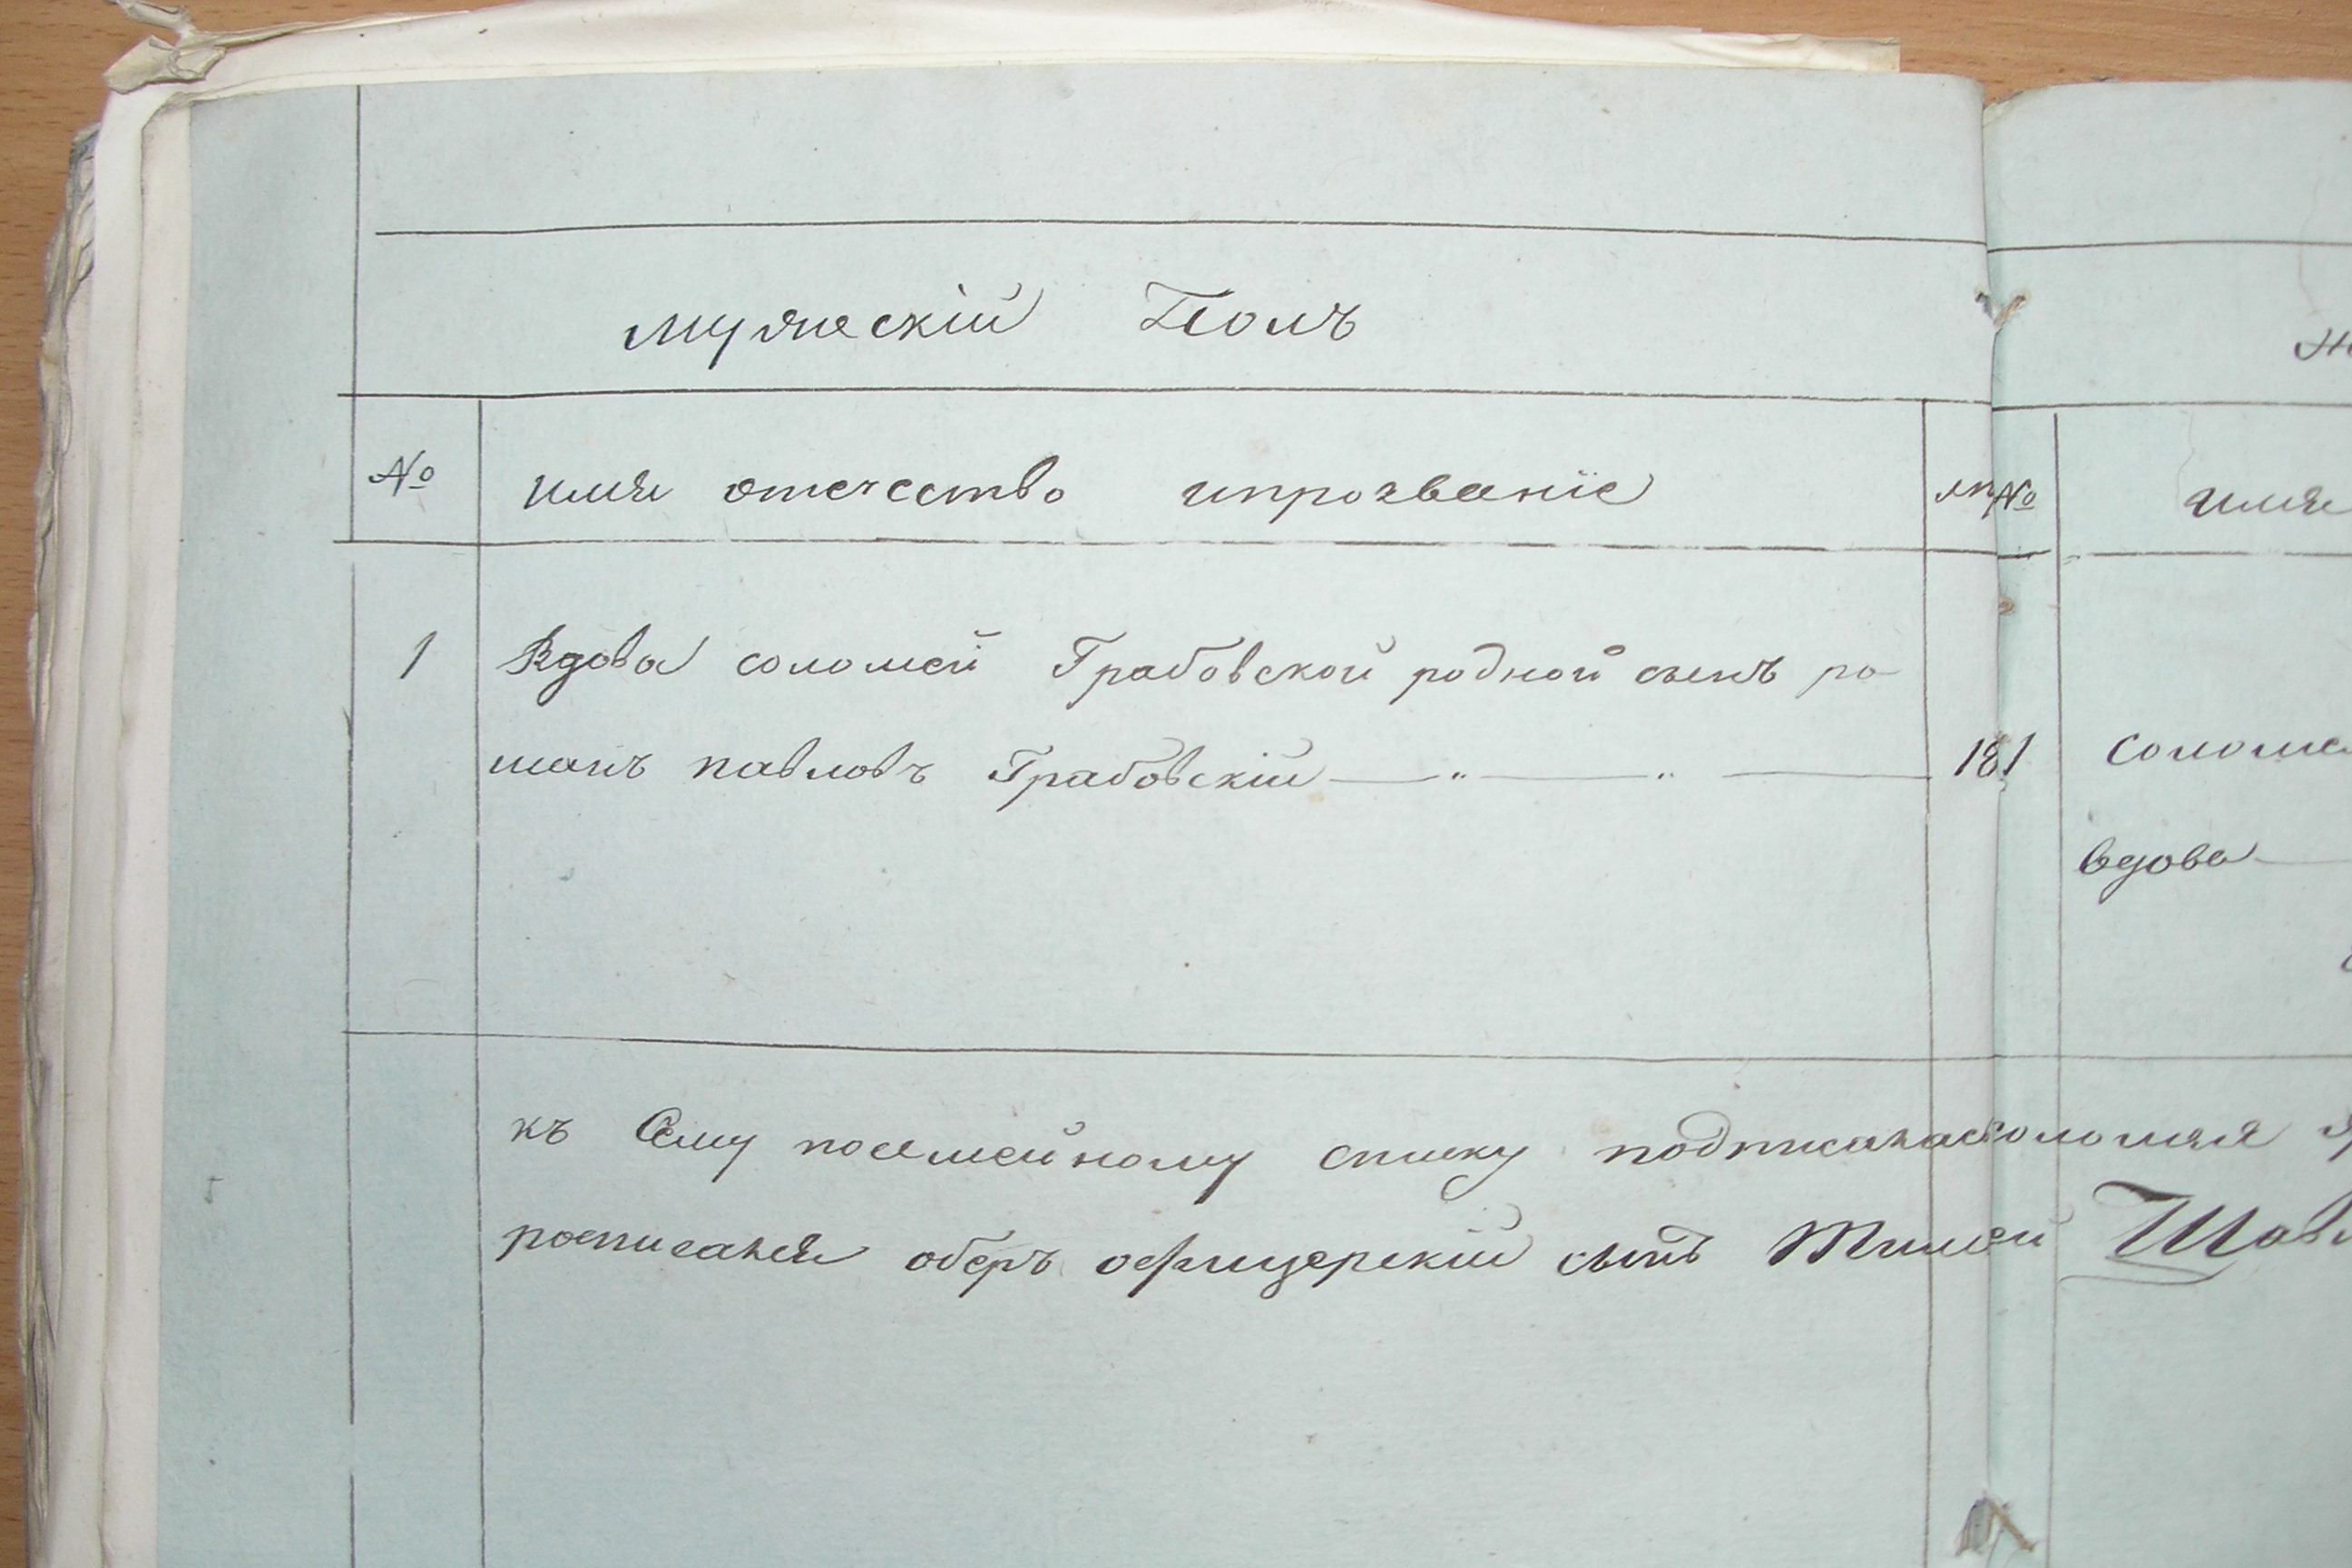 мужескій Полъ
№ имя отечество ипрозваніе
1 Вдова соломей Грабовской родной сынъ ро-
манъ павловъ Грабовскій 18
къ Сему посемейному списку подписалас соломея
росписался оберъ офицерскій сынъ
№ имя
1
вдова